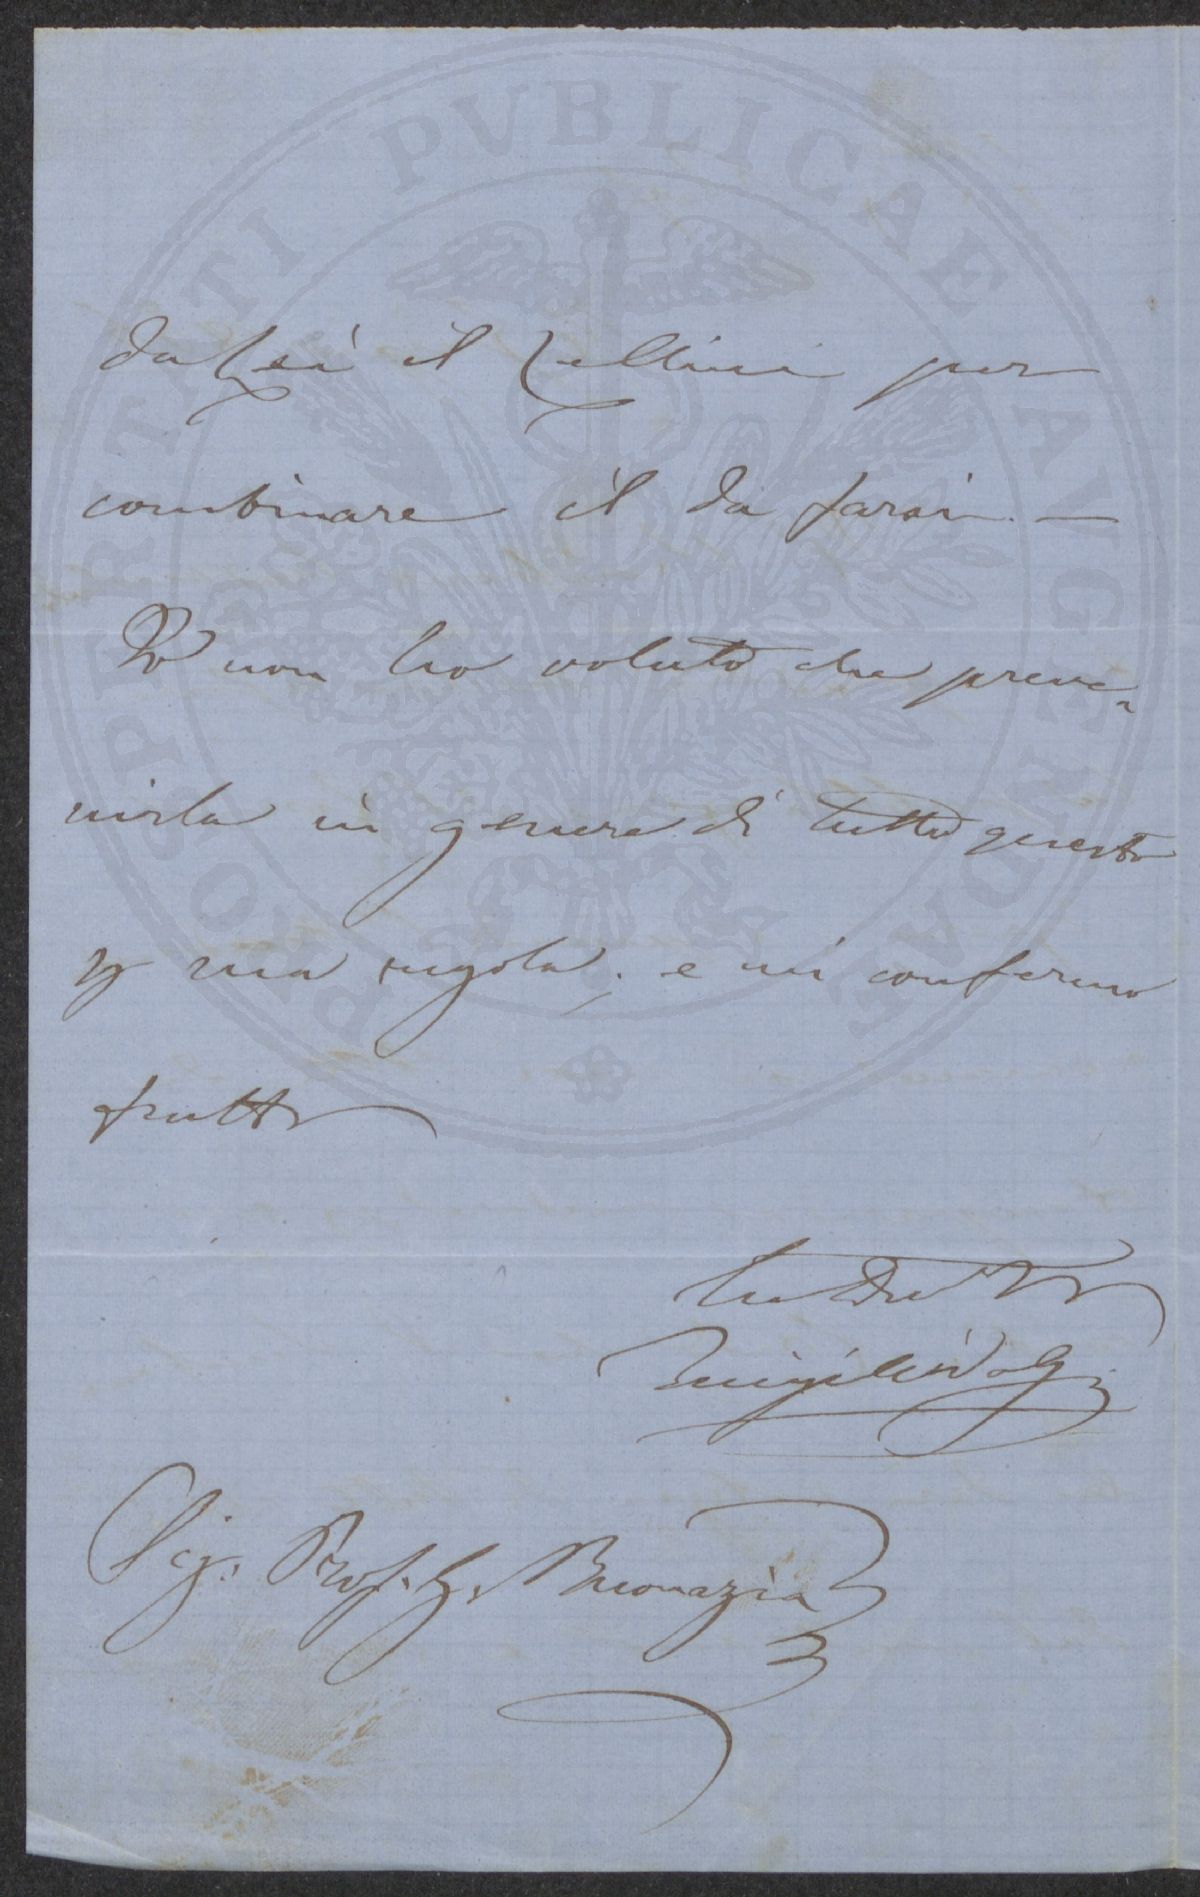 PROSPERITATI PVBLICAE AVGENDAE
da sé il Zellini per
combinare il da farsi. —
Io non ho voluto che preve-
nirla in genere di tutto questo
p sua regola; e mi confermo
frattto
Sig. Prof. G. Buonazia